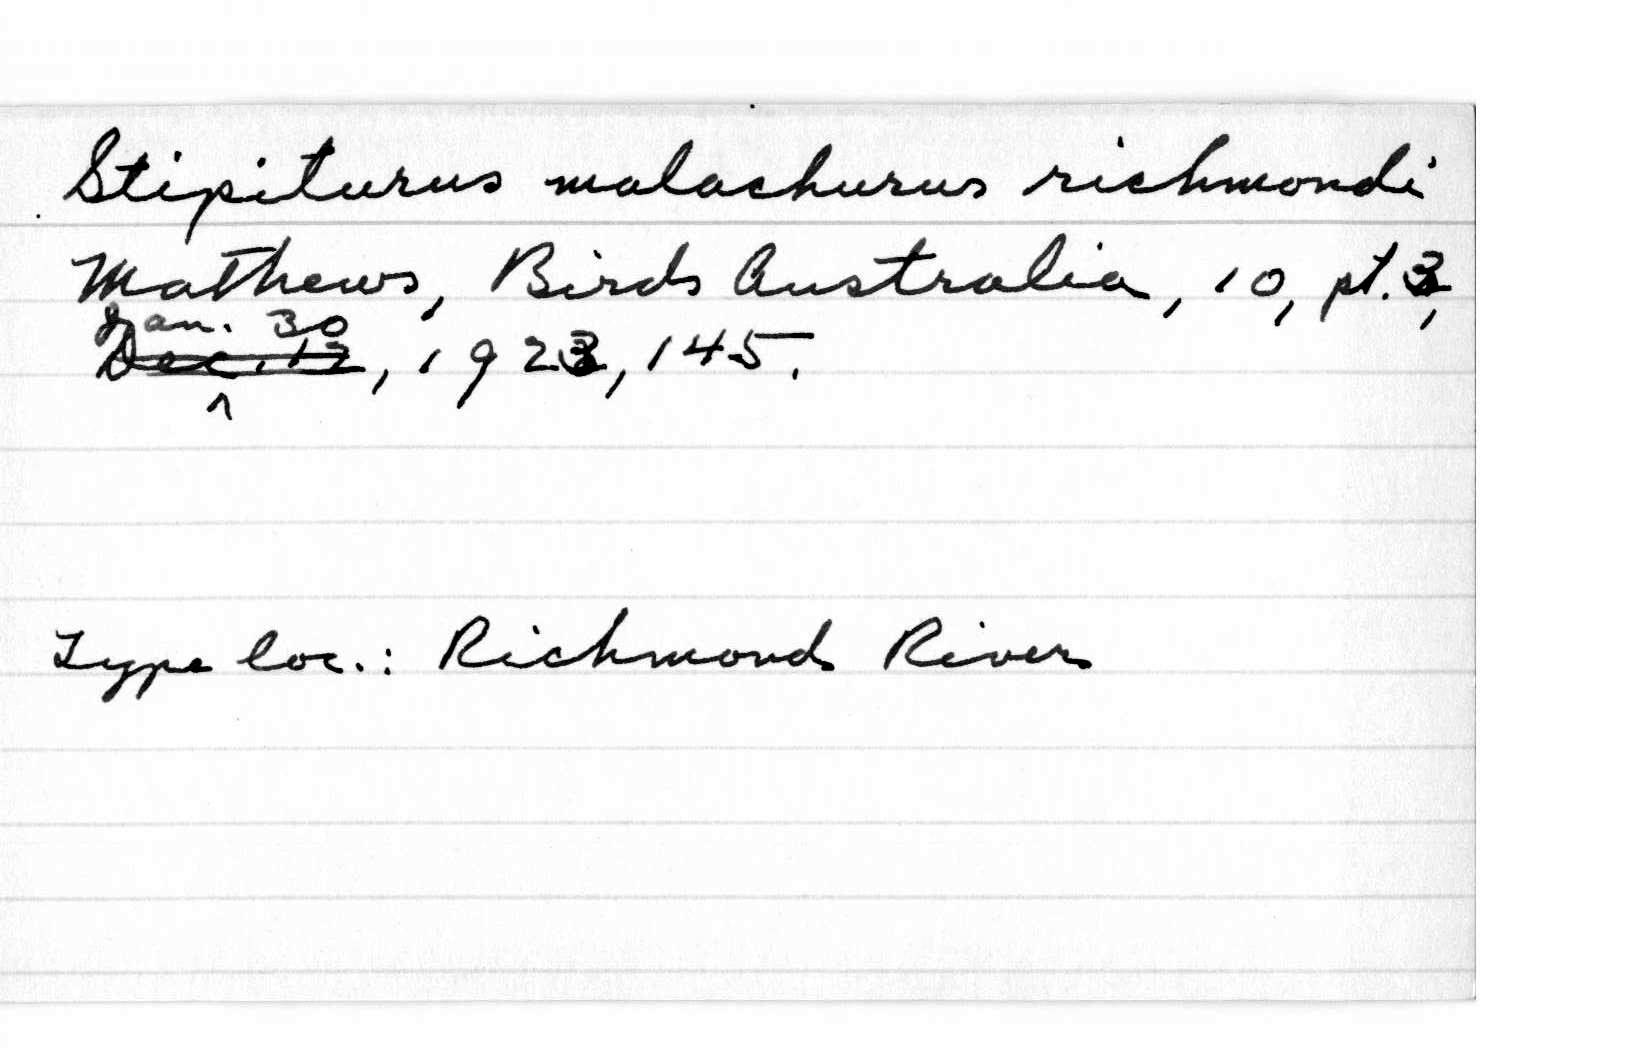 Stipiturus malachurus richmondi
Mathews, Birds Australia, 10, pt. 3,
Jan. 30
Dec. 12, 1923, 145.
^
Type loc.: Richmond River